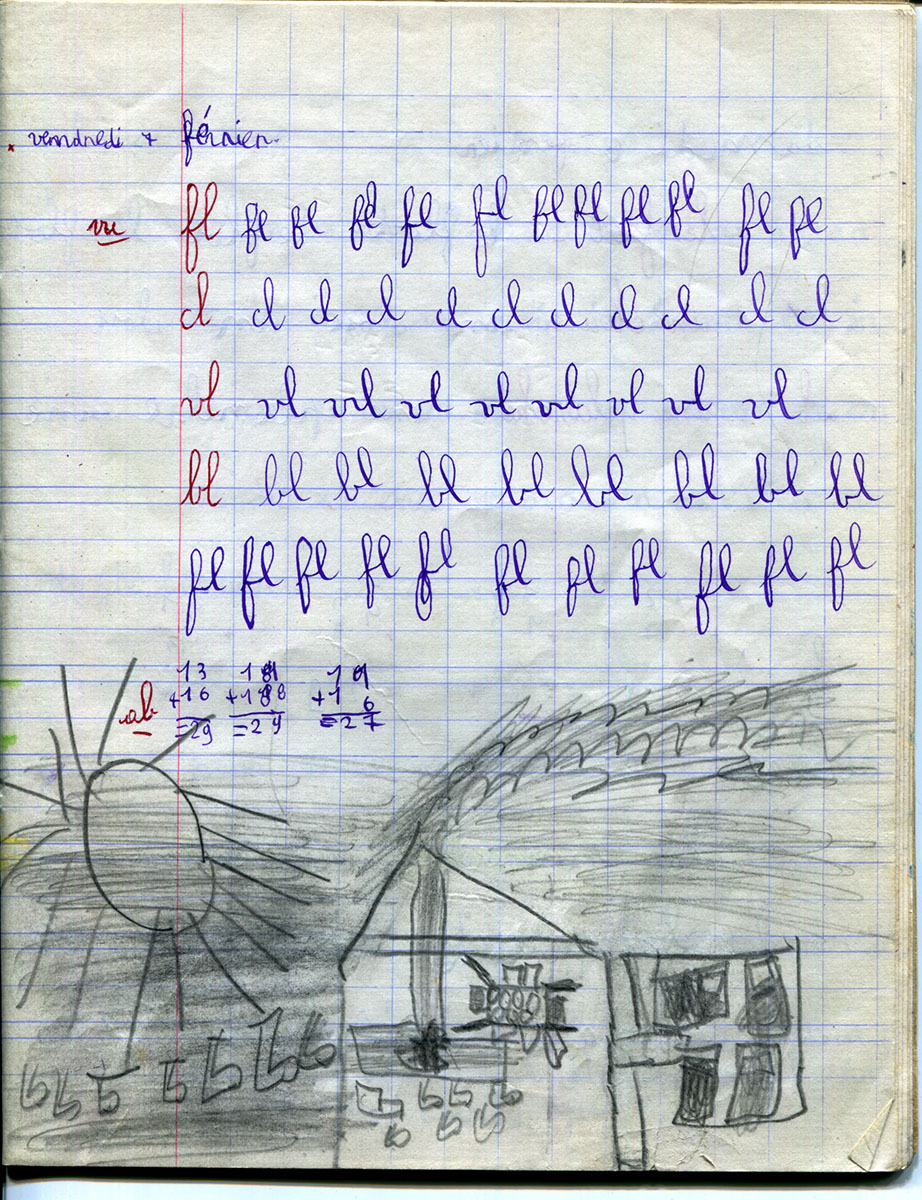 vendredi 7 février.
vu fl fl fl fl fl fl fl fl fl fl fl fl
cl cl cl cl cl cl cl cl cl cl cl
vl vl vl vl vl vl vl vl vl
bl bl bl bl bl bl bl bl bl
fl fl fl fl fl fl fl fl fl fl fl
13
ab +16 +1 6
=29 =29 =27